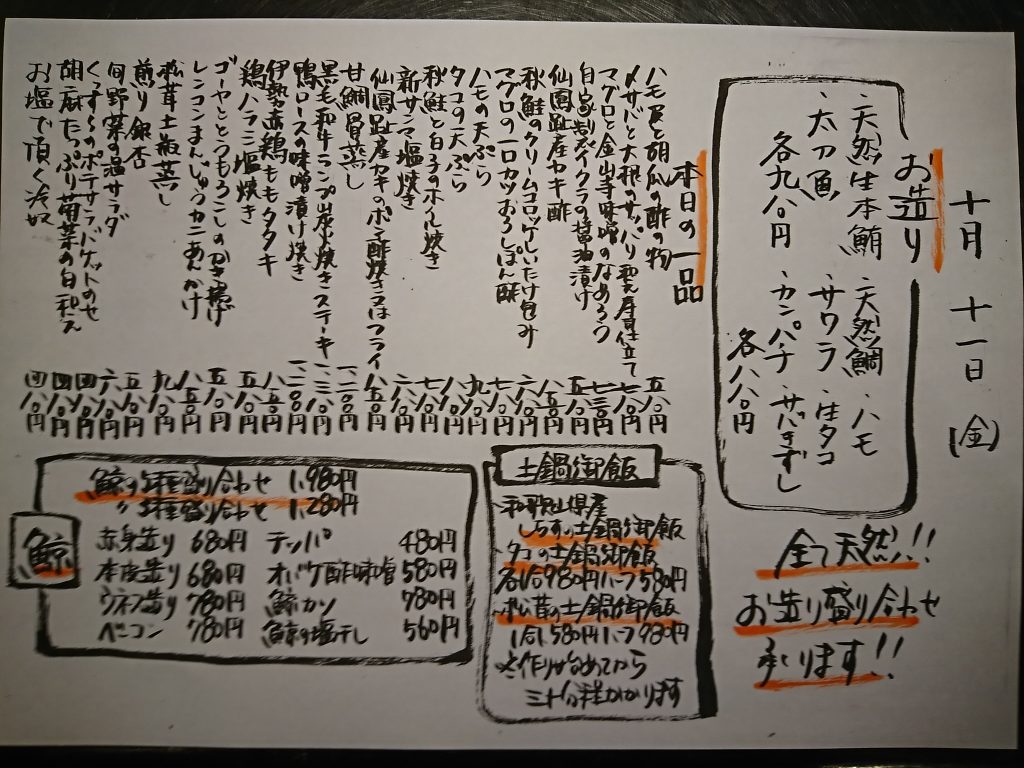 十月 十一日 (金)
お造り
・天然生本鮪 ・天然鯛 ・ハモ
・太刀魚 ・サワラ ・生タコ
各九八〇円 ・カンパチ ・サバきずし
各八八〇円
全て天然!!
お造り盛り合わせ
承ります!!
本日の一品
ハモ皮と胡瓜の酢の物 五八〇円
〆サバと大根のサッパリ和え 仕立て 六八〇円
マグロと金山寺味噌のなめろう 七三〇円
自家製イクラの醤油漬け 五八〇円
仙鳳趾産カキ酢 八五〇円
秋鮭のクリームコロッケしいたけ包み 六八〇円
マグロの一口カツおろしぽん酢 七八〇円
ハモの天ぷら 九八〇円
タコの天ぷら 八八〇円
秋鮭と白子のホイル焼き 七八〇円
新サンマ塩焼き 六八〇円
仙鳳趾産カキのポン酢焼き又はフライ 八五〇円
甘鯛骨蒸し 一、二〇〇円
黒毛和牛ランプ山椒焼きステーキ 一、三八〇円
鴨ロースの味噌漬け焼き 一、二〇〇円
伊勢赤鶏ももタタキ 八八〇円
鶏ハラミ塩焼き 五八〇円
ゴーヤととうもろこしのかき揚げ 五八〇円
レンコンまんじゅうカニあんかけ 八五〇円
松茸土瓶蒸し 九八〇円
煎り銀杏 五八〇円
旬野菜の温サラダ 六八〇円
くずし のポテサラバケットのせ 四八〇円
胡麻たっぷり菊菜の白和え 四八〇円
お塩で頂く冷奴 四八〇円
土鍋御飯
・和歌山県産
しらすの土鍋御飯
・タコの土鍋御飯
各1合980円ハーフ580円
・松茸の土鍋御飯
1合1,580円ハーフ980円
※作り始めてから
三十分程かかります
鯨
鯨の5種盛り合わせ 1,980円
〃3種盛り合わせ 1,280円
赤身造り 680円 テッパ 480円
本皮造り 680円 オバケ酢味噌 580円
ウネス造り 780円 鯨カツ 780円
ベーコン 780円 鯨の塩干し 560円